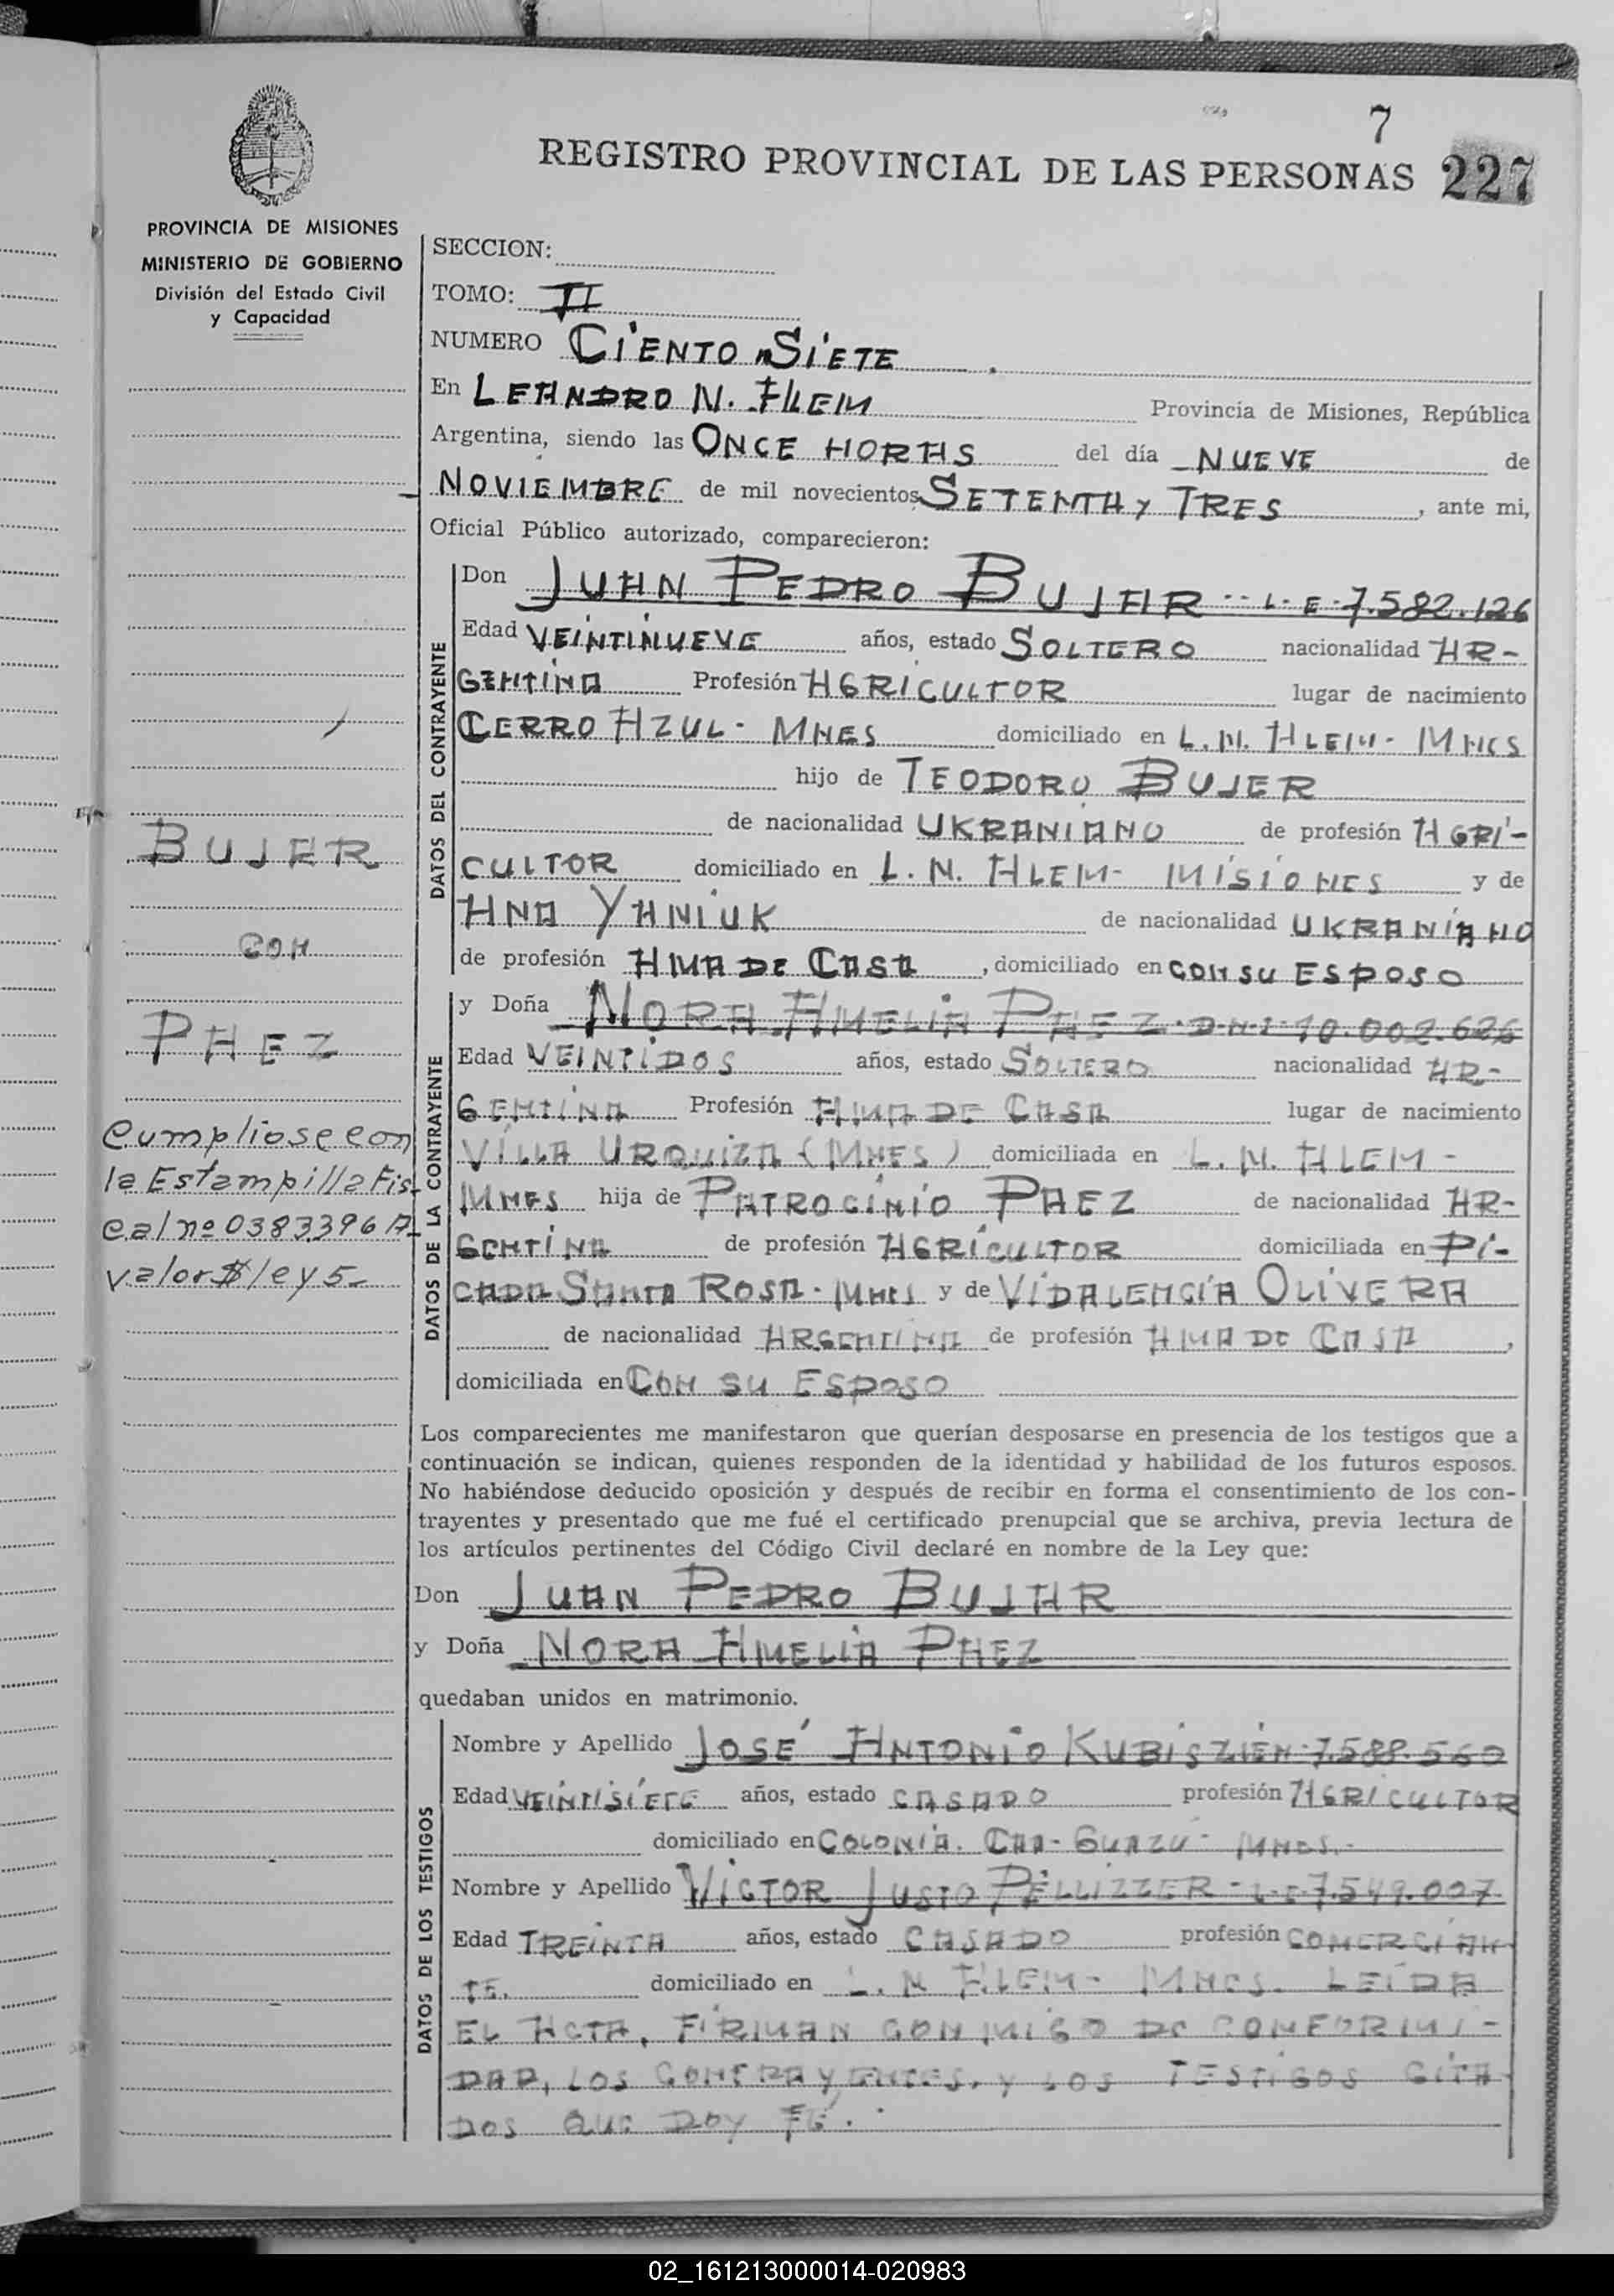 7
REGISTRO PROVINCIAL DE LAS PERSONAS 227
PROVINCIA DE MISIONES
MINISTERIO DE GOBIERNO
División del Estado Civil
y Capacidad
SECCION:
TOMO: II
NUMERO CIENTO SIETE
En LEANDRO N. ALEM Provincia de Misiones, República
Argentina, siendo las ONCE HORAS del día NUEVE de
NOVIEMBRE de mil novecientos SETENTA y TRES, ante mi,
Oficial Público autorizado, comparecieron:
DATOS DEL CONTRAYENTE
Don JUAN PEDRO BUJAR -- L.E. 7.582.126
Edad VEINTINUEVE años, estado SOLTERO nacionalidad AR-
GENTINA Profesión AGRICULTOR lugar de nacimiento
CERRO AZUL - MNES domiciliado en L. N. ALEM - MNES
hijo de TEODORO BUJER
de nacionalidad UKRANIANO de profesión AGRI-
CULTOR domiciliado en L. N. ALEM - MISIONES y de
ANA YANIUK de nacionalidad UKRANIANO
de profesión AMA DE CASA, domiciliado en CON SU ESPOSO
BUJER
CON
PAEZ
Cumpliose con
la Estampilla Fis-
cal nº 0383396 A
valor $ ley 5-
DATOS DE LA CONTRAYENTE
y Doña NORA AMELIA PAEZ - D-N-I- 10.002.626
Edad VEINTIDOS años, estado SOLTERO nacionalidad AR-
GENTINA Profesión AMA DE CASA lugar de nacimiento
VILLA URQUIZA (MNES) domiciliada en L. N. ALEM -
MNES hija de PATROCINIO PAEZ de nacionalidad AR-
GENTINA de profesión AGRICULTOR domiciliada en PI-
CADA SANTA ROSA - MNES y de VIDALENCIA OLIVERA
de nacionalidad ARGENTINA de profesión AMA DE CASA,
domiciliada en CON SU ESPOSO
Los comparecientes me manifestaron que querían desposarse en presencia de los testigos que a
continuación se indican, quienes responden de la identidad y habilidad de los futuros esposos.
No habiéndose deducido oposición y después de recibir en forma el consentimiento de los con-
trayentes y presentado que me fué el certificado prenupcial que se archiva, previa lectura de
los artículos pertinentes del Código Civil declaré en nombre de la Ley que:
Don JUAN PEDRO BUJAR
y Doña NORA AMELIA PAEZ
quedaban unidos en matrimonio.
DATOS DE LOS TESTIGOS
Nombre y Apellido JOSÉ ANTONIO KUBISZIEN - 7.588.560
Edad VEINTISIETE años, estado CASADO profesión AGRICULTOR
domiciliado en COLONIA. CAA-GUAZÚ - MNES.-
Nombre y Apellido VICTOR JUSTO PELLIZZER - L-E 7.549.007
Edad TREINTA años, estado CASADO profesión COMERCIAN-
TE. domiciliado en L. N ALEM - MNES. LEÍDA
EL ACTA, FIRMAN CONMIGO DE CONFORMI-
DAD, LOS CONTRAYENTES, Y LOS TESTIGOS CITA
DOS QUE DOY FÉ.
02_161213000014-020983